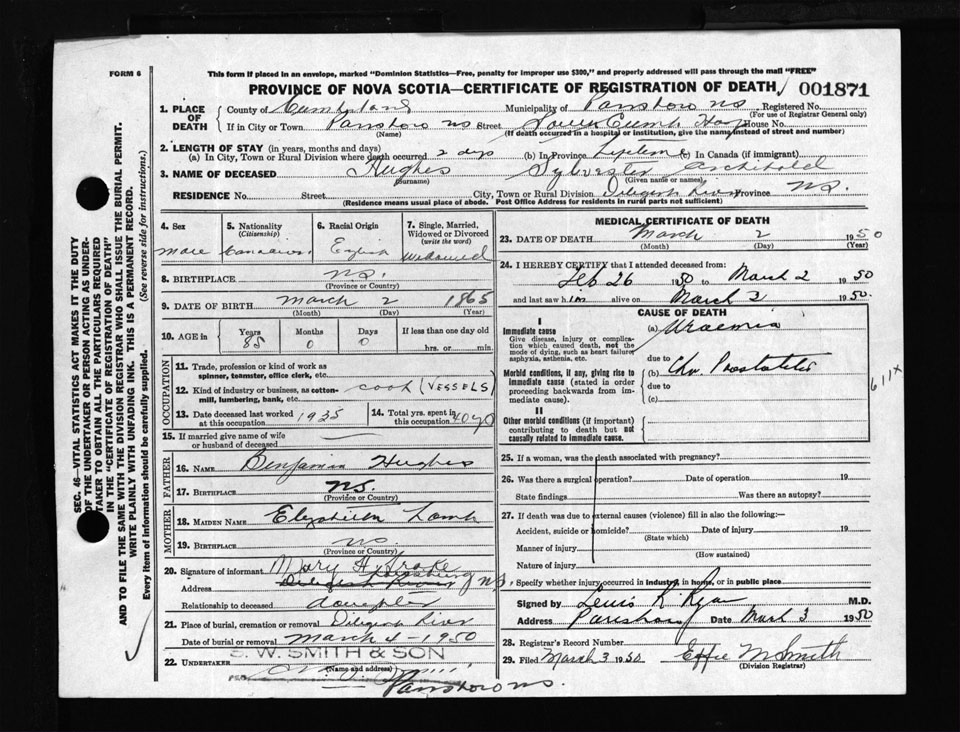 FORM 6
This form if placed in an envelope, marked "Dominion Statistics—Free, penalty for improper use $300," and properly addressed will pass through the mail "FREE"
PROVINCE OF NOVA SCOTIA—CERTIFICATE OF REGISTRATION OF DEATH 001871
1. PLACE OF DEATH County of Cumberland Municipality of Parrsboro NS. Registered No.
(For use of Registrar General only)
If in City or Town Parrsboro NS Street South Cumb Hosp House No.
(Name) (If death occurred in a hospital or institution, give the name instead of street and number)
2. LENGTH OF STAY (in years, months and days)
(a) In City, Town or Rural Division where death occurred 2 dys (b) In Province Lifetime (c) In Canada (if immigrant)
3. NAME OF DECEASED Hughes Sylvester Archibald
(Surname) (Given name or names)
RESIDENCE No. Street City, Town or Rural Division Diligent River Province NS.
(Residence means usual place of abode. Post Office Address for residents in rural parts not sufficient)
4. Sex 5. Nationality (Citizenship) 6. Racial Origin 7. Single, Married, Widowed or Divorced (write the word)
male Canadian English Widowed
8. BIRTHPLACE NS.
(Province or Country)
9. DATE OF BIRTH March 2 1865
(Month) (Day) (Year)
10. AGE in Years Months Days If less than one day old
85 0 0 hrs. or min.
OCCUPATION
11. Trade, profession or kind of work as spinner, teamster, office clerk, etc.
12. Kind of industry or business, as cotton-mill, lumbering, bank, etc. cook (VESSELS)
13. Date deceased last worked at this occupation 1935 14. Total yrs. spent in this occupation 40 yo
15. If married give name of wife or husband of deceased
FATHER
16. NAME Benjamin Hughes
17. BIRTHPLACE NS
(Province or Country)
MOTHER
18. MAIDEN NAME Elizabeth Lamb
19. BIRTHPLACE NS
(Province or Country)
20. Signature of informant Mary H
Address Diligent River NS.
Relationship to deceased daughter
21. Place of burial, cremation or removal Diligent River
Date of burial or removal March 4-1950
22. UNDERTAKER S. W. SMITH & SON
(Name and address)
Parrsboro NS.
MEDICAL CERTIFICATE OF DEATH
23. DATE OF DEATH March 2 1950
(Month) (Day) (Year)
24. I HEREBY CERTIFY that I attended deceased from:
Feb 26 1950 to March 2 1950
and last saw him alive on March 2 1950.
CAUSE OF DEATH
I
Immediate cause (a) Uraemia
Give disease, injury or complication which caused death, not the mode of dying, such as heart failure, asphyxia, asthenia, etc. due to
Morbid conditions, if any, giving rise to immediate cause (stated in order proceeding backwards from immediate cause). (b) Chr. Prostatitis
due to
(c)
611X
II
Other morbid conditions (if important) contributing to death but not causally related to immediate cause.
25. If a woman, was the death associated with pregnancy?
26. Was there a surgical operation? Date of operation 19
State findings Was there an autopsy?
27. If death was due to external causes (violence) fill in also the following:—
Accident, suicide or homicide? Date of injury 19
(State which)
Manner of injury
(How sustained)
Nature of injury
Specify whether injury occurred in industry, in home, or in public place
Signed by M.D.
Address Parrsboro Date Mar 3 1950
28. Registrar's Record Number
29. Filed March 3 1950 Effie M Smith
(Division Registrar)
SEC. 46—VITAL STATISTICS ACT MAKES IT THE DUTY
OF THE UNDERTAKER OR PERSON ACTING AS UNDER-
TAKER TO OBTAIN ALL THE PARTICULARS REQUIRED
IN THE "CERTIFICATE OF REGISTRATION OF DEATH"
AND TO FILE THE SAME WITH THE DIVISION REGISTRAR WHO SHALL ISSUE THE BURIAL PERMIT.
WRITE PLAINLY WITH UNFADING INK. THIS IS A PERMANENT RECORD.
Every item of information should be carefully supplied. (See reverse side for instructions.)